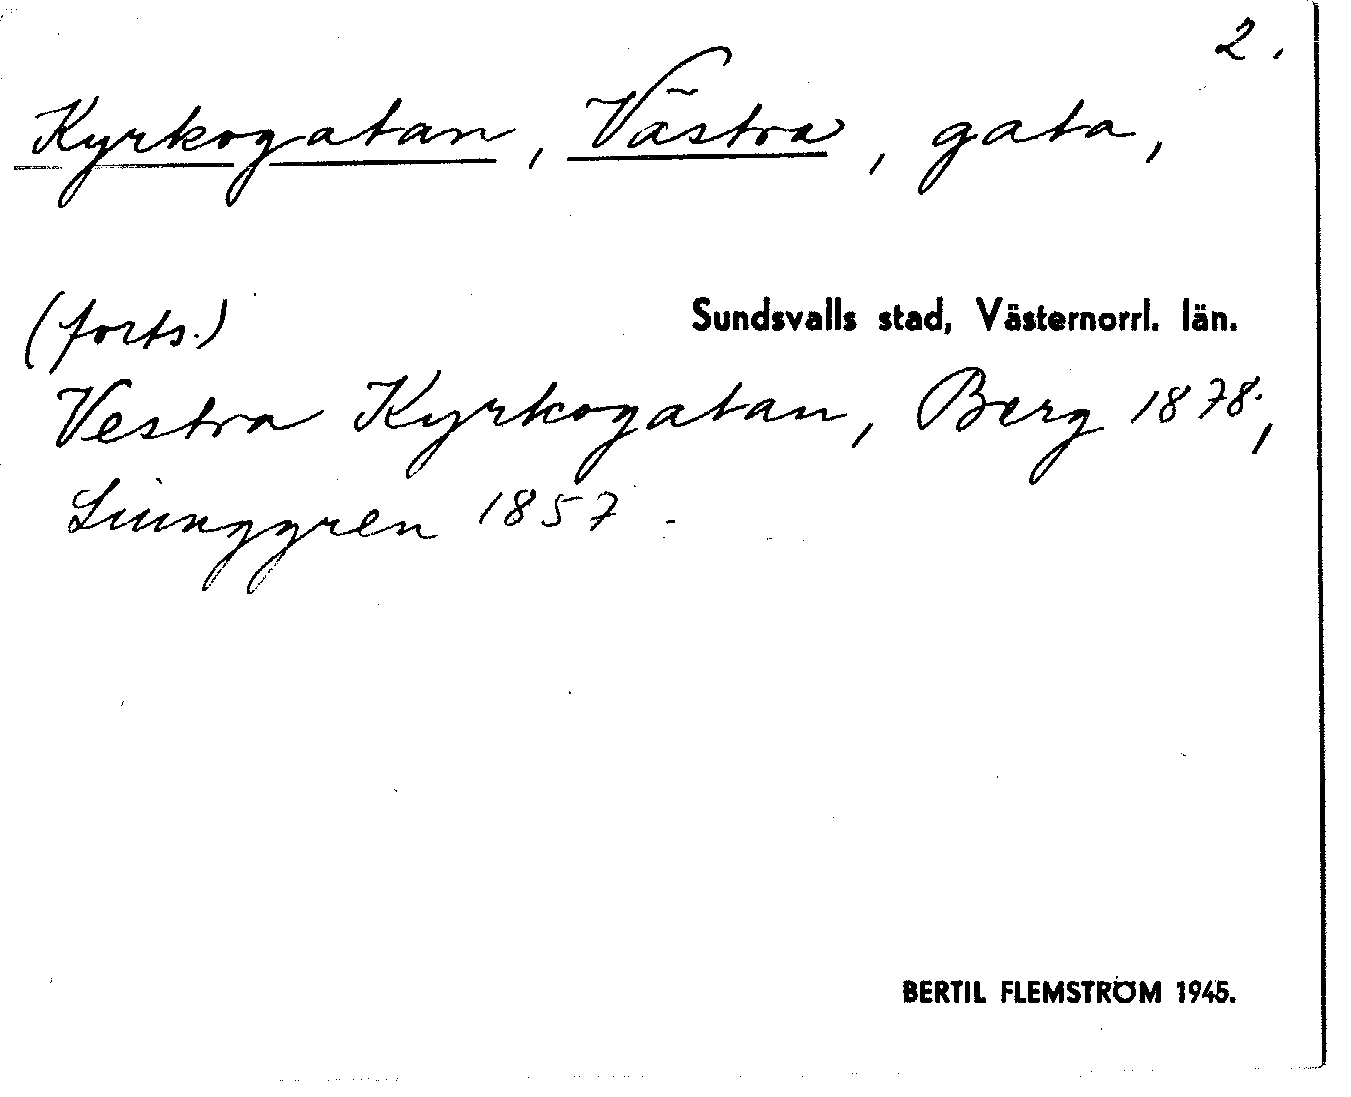 2.
Kyrkogatan, Västra, gata,
(forts.)
Sundsvalls stad, Västernorrl. län.
Vestra Kyrkogatan, Berg 1878;
Liunggren 1857.
BERTIL FLEMSTRÖM 1945.